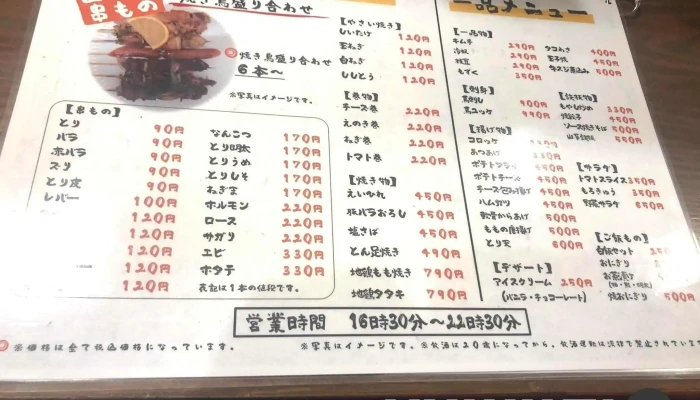 串もの
焼き鳥盛り合わせ
◎焼き鳥盛り合わせ
6本〜
※写真はイメージです。
【串もの】
とり 90円
バラ 90円
ホバラ 90円
ズリ 90円
とり皮 90円
レバー 100円
120円
120円
120円
120円
120円
なんこつ 170円
とり明太 170円
とりうめ 170円
とりしそ 170円
ねぎま 170円
ホルモン 220円
ロース 220円
サガリ 220円
エビ 330円
ホタテ 330円
表記は1本の値段です。
【やさい焼き】
しいたけ 120円
玉ねぎ 120円
白ねぎ 120円
ししとう 120円
【巻物】
チーズ巻 220円
えのき巻 220円
ねぎ巻 220円
トマト巻 220円
【焼き物】
えいひれ 450円
豚バラおろし 450円
塩さば 450円
とん足焼き 490円
地鶏もも焼き 790円
地鶏タタキ 790円
一品メニュー
【一品物】
キムチ 290円
冷奴 290円
枝豆 290円
もずく 350円
タコわさ 400円
玉子焼 450円
牛スジ煮込み 500円
【刺身】
馬刺し 900円
馬ユッケ 990円
【鉄板物】
もやし炒め 330円
焼餃子 450円
ソース焼きそば 500円
550円
【揚げ物】
コロッケ
あつあげ 330円
ポテトフライ 450円
ポテトチーズ 450円
チーズ包み揚げ 450円
ハムカツ 450円
軟骨からあげ 500円
ももの唐揚げ 500円
とり天 600円
【サラダ】
トマトスライス 350円
もろきゅう 350円
野菜サラダ 650円
【ご飯もの】
白飯セット 250
おにぎり
お茶漬け
(梅・鮭・明太)
焼おにぎり 500
【デザート】
アイスクリーム 250円
(バニラ・チョコレート)
営業時間 16時30分〜22時30分
◎※価格は全て税込価格になっています。
※写真はイメージです。※飲酒は20歳になってから。飲酒運転は法律で禁止されています